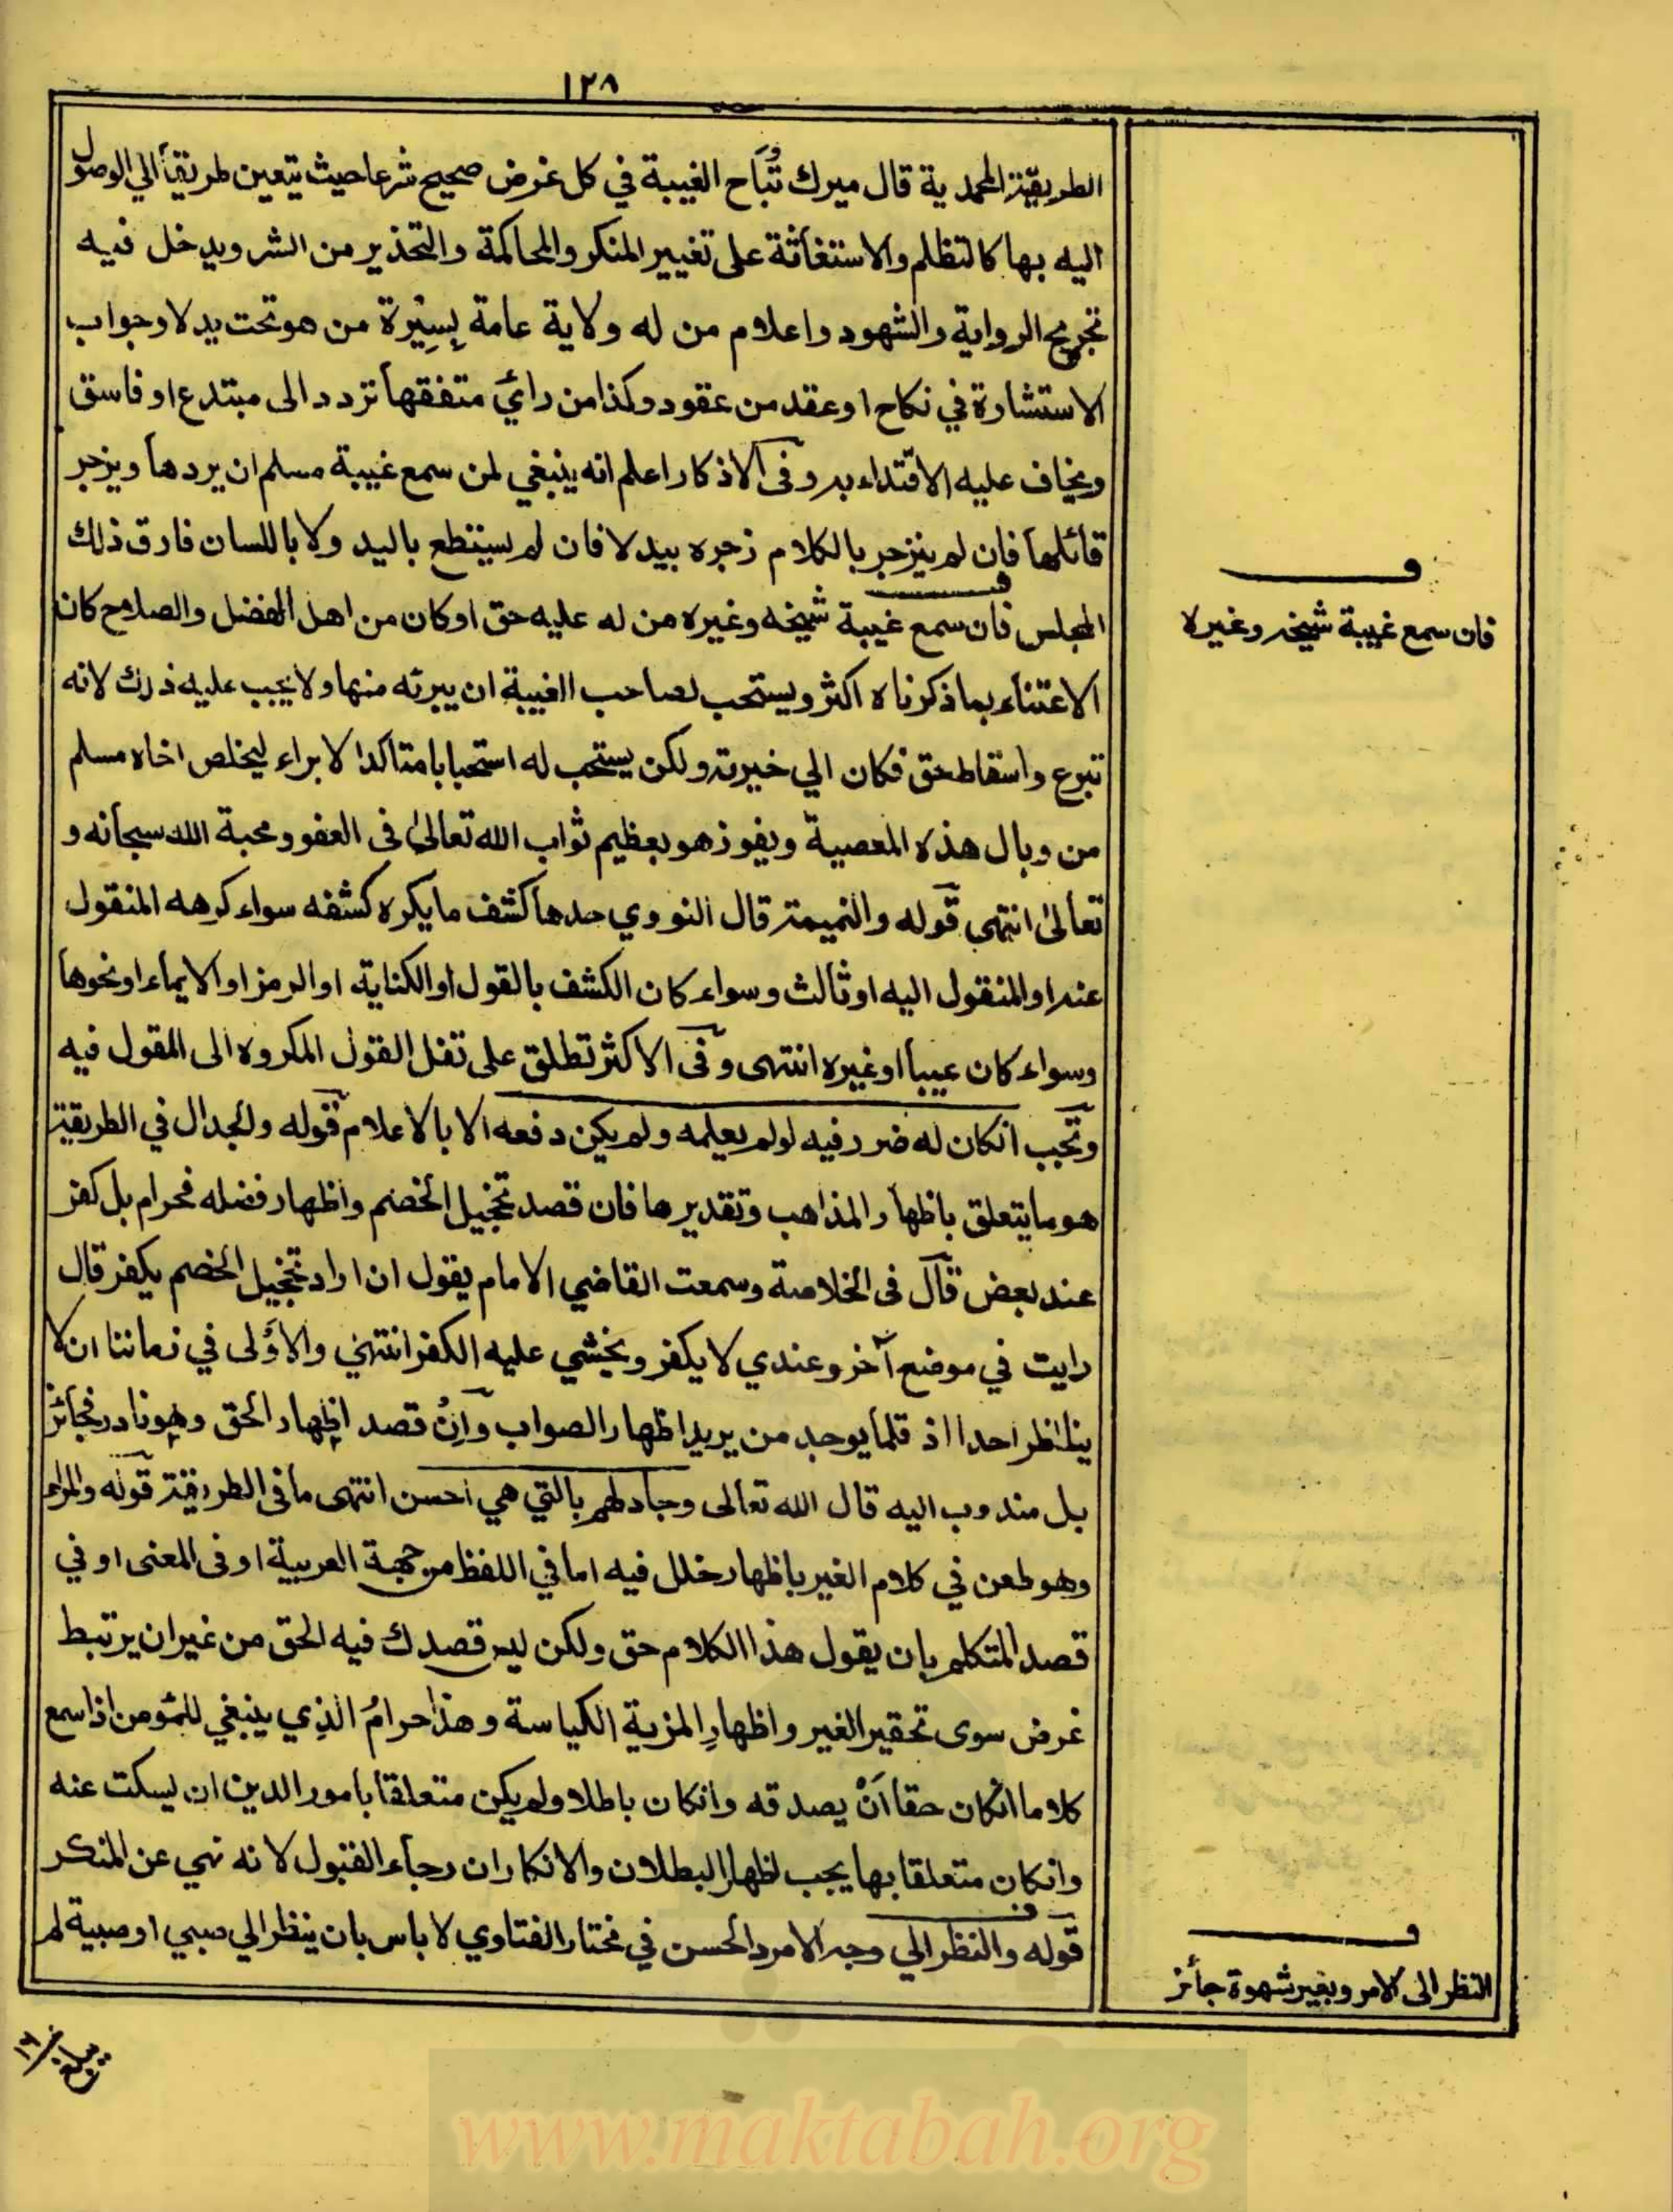 ١٢٨
الطريقة المحمدية قال ميرك تُبَاح الغيبة في كل غرض صحيح شرعا حيث يتعين طريقا الي الوصول
اليه بها كالتظلم والاستغاثة على تغيير المنكر والمحاكمة والتحذير من الشر ويدخل فيه
تجريح الرواية والشهود واعلام من له ولاية عامة بِسِيْرة من هو تحت يده وجواب
الاستشارة في نكاح او عقد من عقود وكذا من رأي متفقها تردد الى مبتدع او فاسق
ويخاف عليه الاقتداء به وفي الاذكار اعلم انه ينبغي لمن سمع غيبة مسلم ان يردها ويزجر
قائلها فان لم ينزجر بالكلام زجره بيده فان لم يستطع باليد ولا باللسان فارق ذلك
المجلس فان سمع غيبة شيخه وغيره من له عليه حق او كان من اهل الفضل والصلاح كان
الاعتناء بما ذكرناه اكثر ويستحب لصاحب الغيبة ان يبرئه منها ولا يجب عليه ذلك لانه
تبرع واسقاط حق فكان الي خيرته ولكن يستحب له استحبابا متاكدا الابراء ليخلص اخاه مسلم
من وبال هذه المعصية ويفوز هو بعظيم ثواب الله تعالىٰ في العفو ومحبة الله سبحانه و
تعالىٰ انتهى قوله والنميمة قال النووي حدها كشف ما يكره كشفه سواء كرهه المنقول
عنه او المنقول اليه او ثالث وسواء كان الكشف بالقول او الكناية او الرمز او الايماء او نحوها
وسواء كان عيبا او غيره انتهى وفي الاكثر تطلق على نقل القول المكروه الى المقول فيه
وتجب انكان له ضرر فيه لو لم يعلمه ولم يكن دفعه الا بالاعلام قوله والجدال في الطريقة
هو ما يتعلق باظهار المذاهب وتقديرها فان قصد تخجيل الخصم واظهار فضله فحرام بل كفر
عند بعض قال في الخلاصة وسمعت القاضي الامام يقول ان اراد تخجيل الخصم يكفر قال
رايت في موضع آخر وعندي لا يكفر ويخشي عليه الكفر انتهي والاَولى في زماننا ان لا
يناظر احدا اذ قلما يوجد من يريد اظهار الصواب واِنْ قصد اظهار الحق وهو نادر فجائز
بل مندوب اليه قال الله تعالى وجادلهم بالتي هي احسن انتهى ما في الطريقة قوله والمراء
وهو طعن في كلام الغير باظهار خلل فيه اما في اللفظ من جهة العربية او في المعنى او في
قصد المتكلم بان يقول هذا الكلام حق ولكن ليس قصدك فيه الحق من غير ان يرتبط
غرض سوى تحقير الغير واظهارِ المزية الكياسة وهذا حرامٌ الذِي ينبغي للمؤمن اذا سمع
كلاما انكان حقا اَنْ يصدقه وانكان باطلا ولم يكن متعلقا بامور الدين ان يسكت عنه
وانكان متعلقا بها يجب اظهار البطلان والانكار ان رجاء القبول لانه نهي عن المنكر
قوله والنظر الي وجه الامرد الحسن في مختار الفتاوي لا باس بان ينظر الي صبي او صبية لم
فان سمع غيبة شيخه وغيره
النظر الى الامر وبغير شهوة جائز
www.maktabah.org